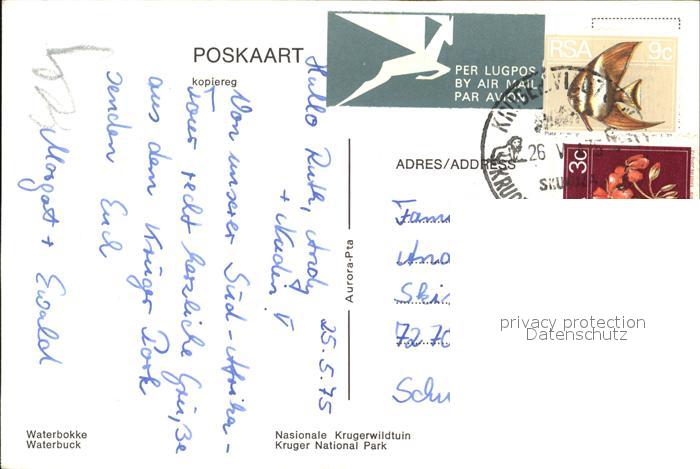 POSKAART
kopiereg
PER LUGPOS
BY AIR MAIL
PAR AVION
RSA 9c
3c
26 V
SKUKUZA
ADRES/ADDRESS
Aurora-Pta
25.5.75
Hallo Ruth, Andy
+ Nadin!
Von unserer Süd-Afrika-
Tour recht herzliche Grüße
aus dem Krüger Park
senden Euch
Margot + Ewald
Fam
And
Ski
727
Sch
privacy protection
Datenschutz
Waterbokke
Waterbuck
Nasionale Krugerwildtuin
Kruger National Park